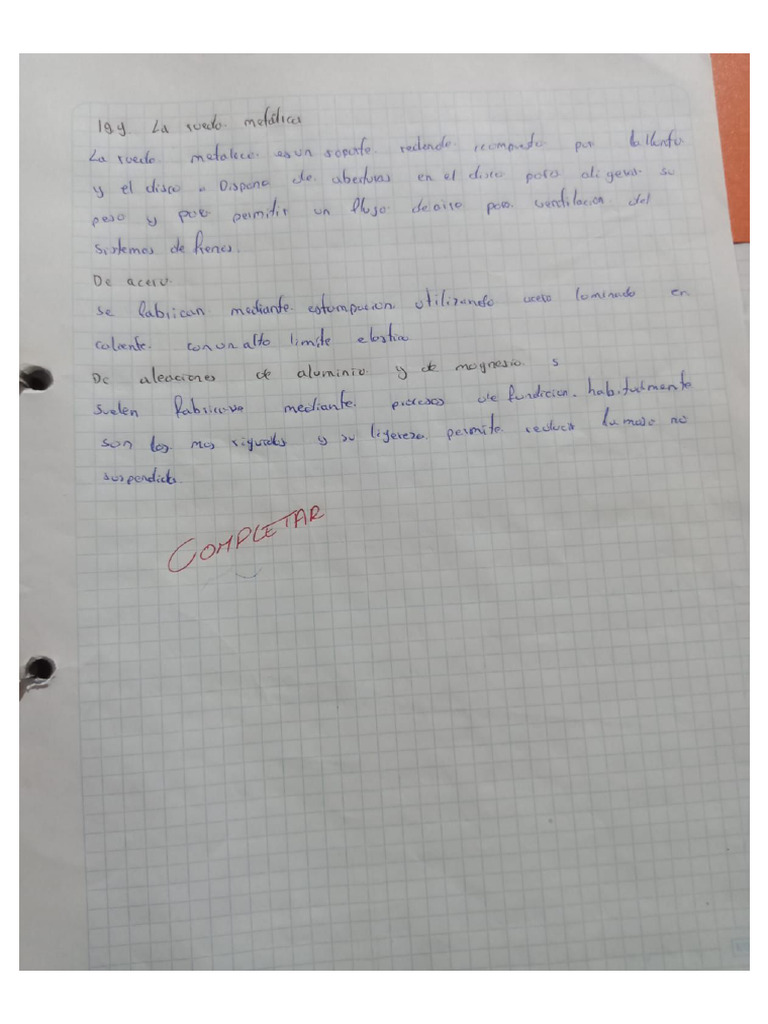 19.4 La rueda metálica
La rueda metaleca es un soporte redondo recompuesto por la llanta
y el disco. Dispone de aberturas en el disco para aligerar su
peso y para permitir un flujo de aire para ventilacion del
sistemas de frenos.
De acero.
se fabrican mediante estampacion utilizando acero laminado en
caliente con un alto limite elastico
De aleaciones de aluminio y de magnesio s
suelen fabricarse mediante procesos de fundicion. habitualmente
son las mas y su ligereza permite reducir la masa no
suspendida.
COMPLETAR